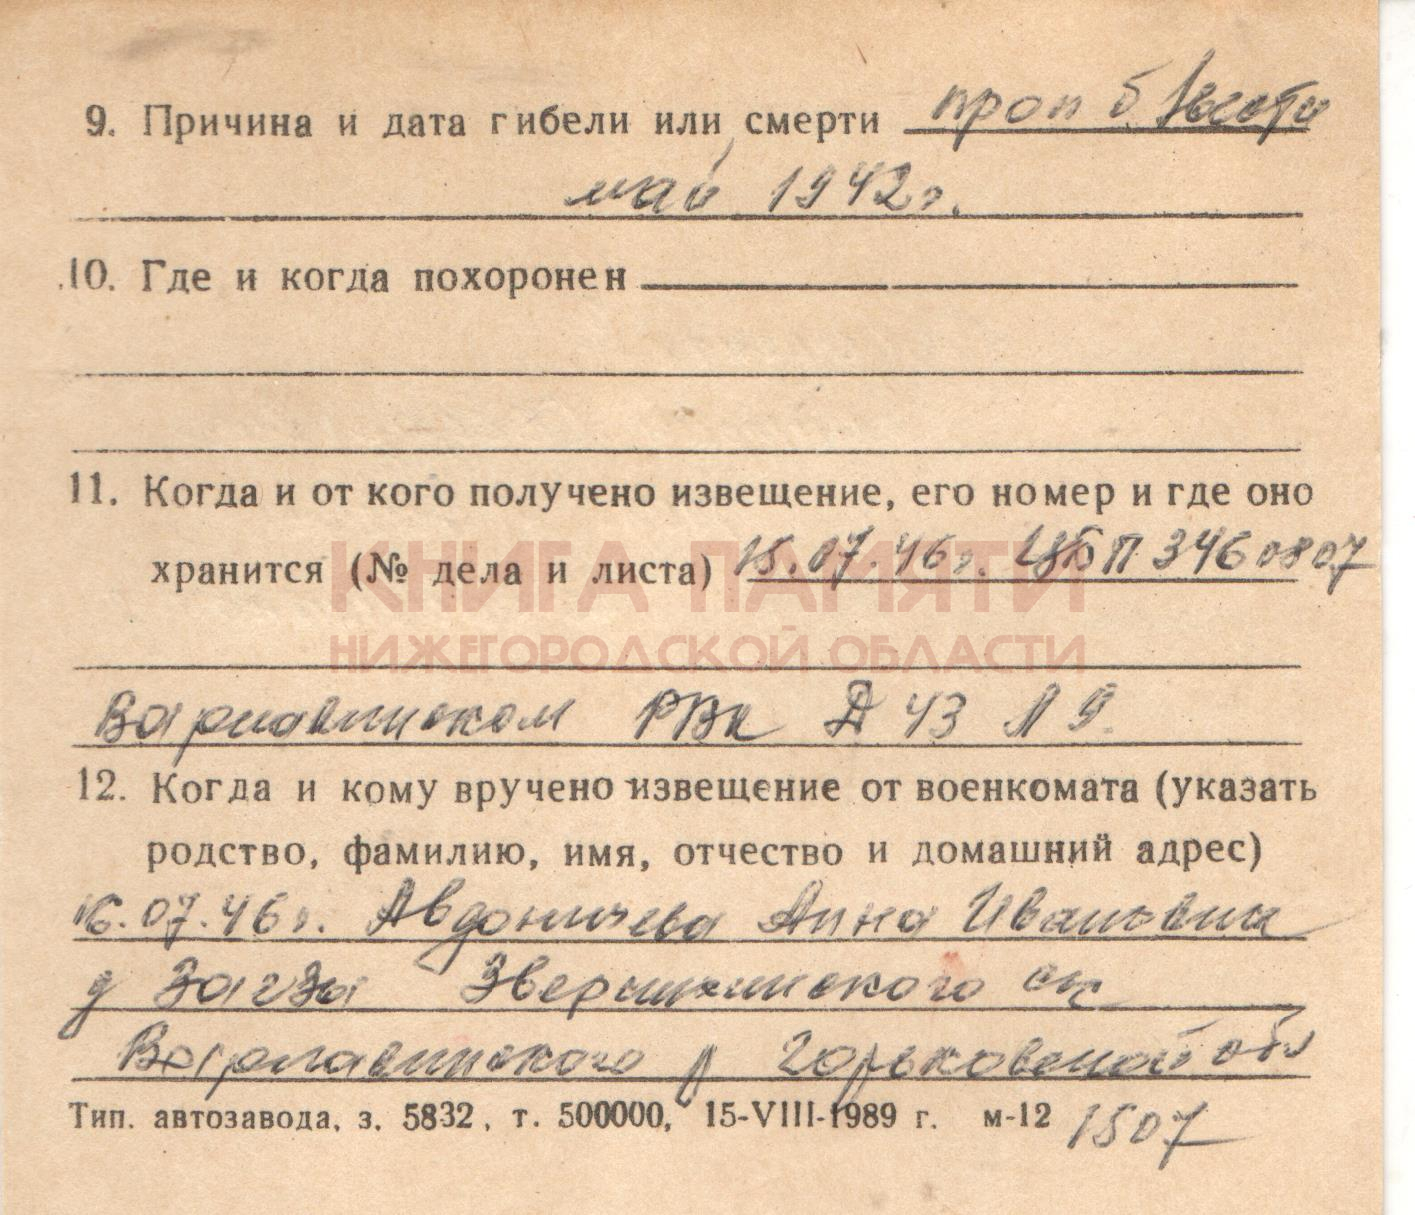 9. Причина и дата гибели или смерти проп б. вести
май 1942г.
10. Где и когда похоронен
11. Когда и от кого получено извещение, его номер и где оно
хранится (№ дела и листа) 15.07.46г. ЦБП 3460807
КНИГА ПАМЯТИ
НИЖЕГОРОДСКОЙ ОБЛАСТИ
Варнавинском РВК Д 43 Л 9
12. Когда и кому вручено извещение от военкомата (указать
родство, фамилию, имя, отчество и домашний адрес)
16.07.46г. Авдоничева Анна Ивановна
д Звернихинского с/с
Варнавинского р Горьковской обл
Тип. автозавода, з. 5832, т. 500000, 15-VIII-1989 г. м-12 1507